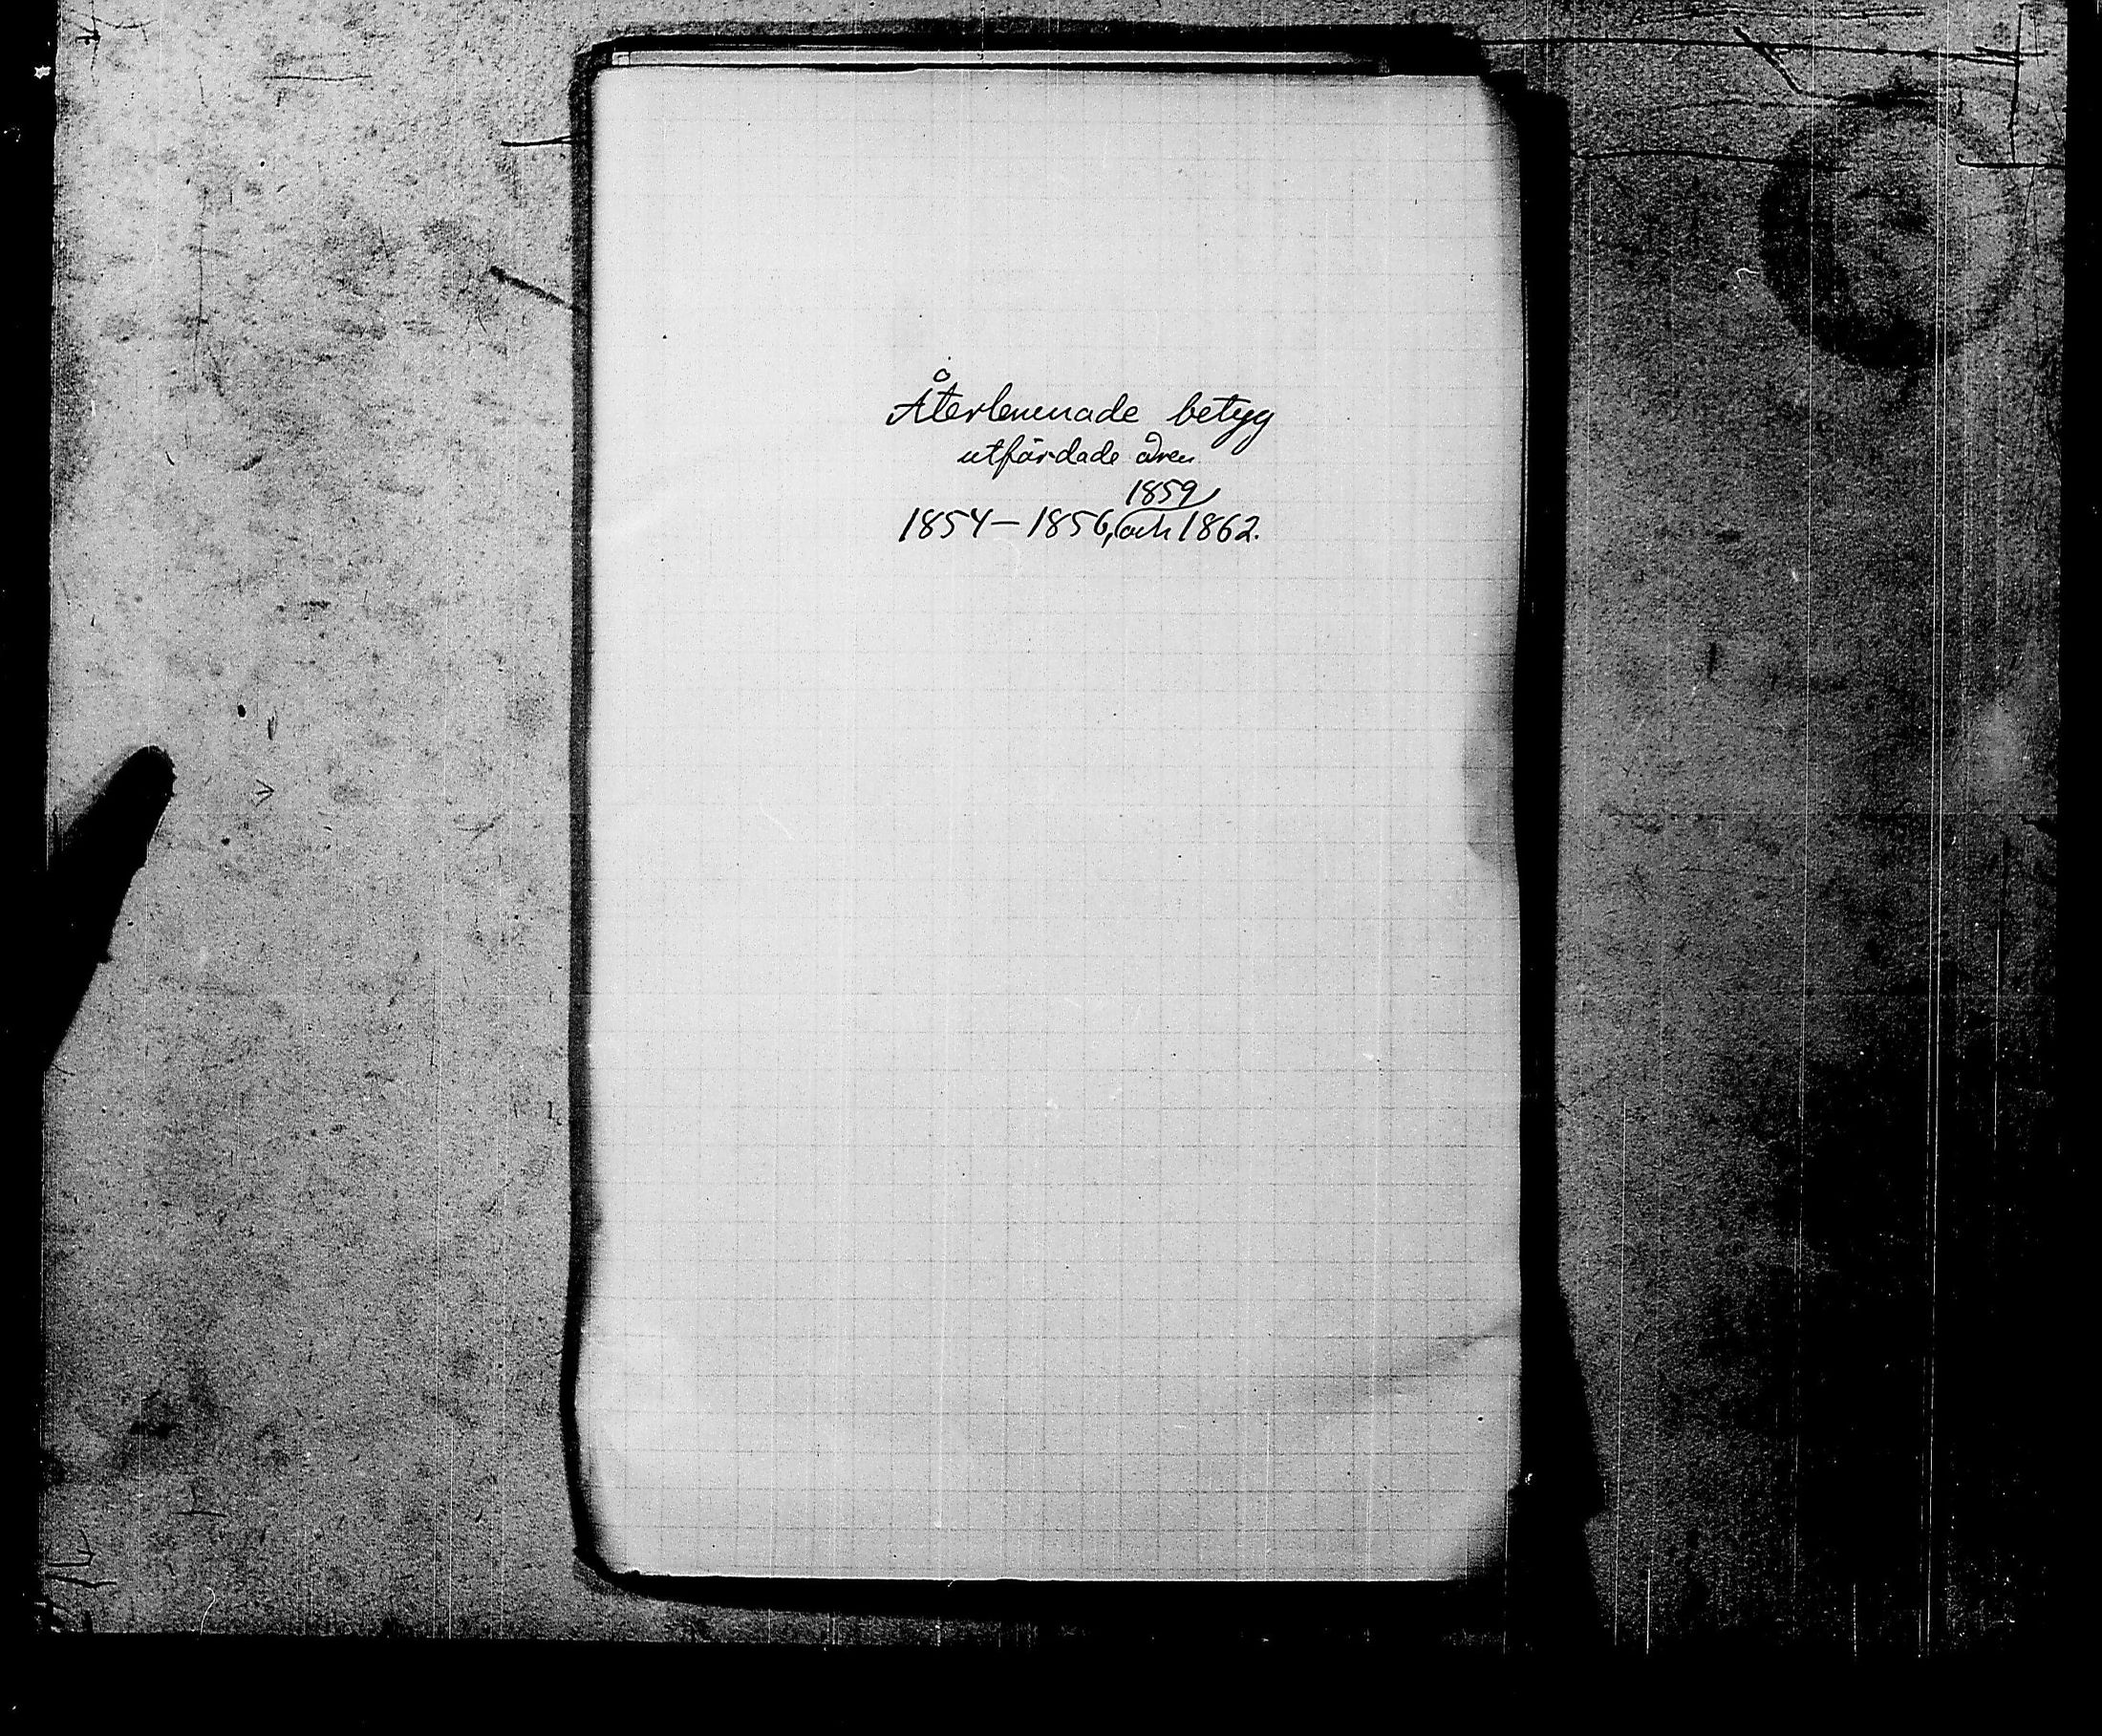 Återlemnade betyg
utfärdade åren
1859
1854–1856, och 1862.